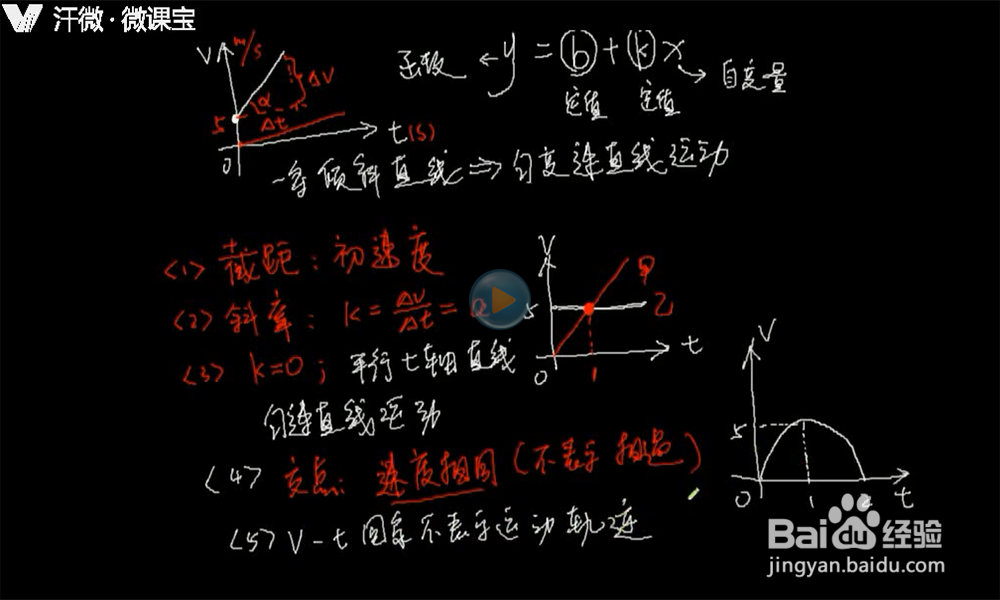 汗微·微课宝
V m/s
ΔV
α
Δt
5
0
t(s)
函数 ← y = b + k x → 自变量
定值 定值
一条倾斜直线 => 匀变速直线运动
<1> 截距：初速度
<2> 斜率：k = ΔV/Δt = a
<3> k=0；平行t轴直线
匀速直线运动
<4> 交点：速度相同（不表示相遇）
<5> V-t图象不表示运动轨迹
V
甲
乙
5
0
1
t
V
5
0
1
2
t
Baidu 经验
jingyan.baidu.com